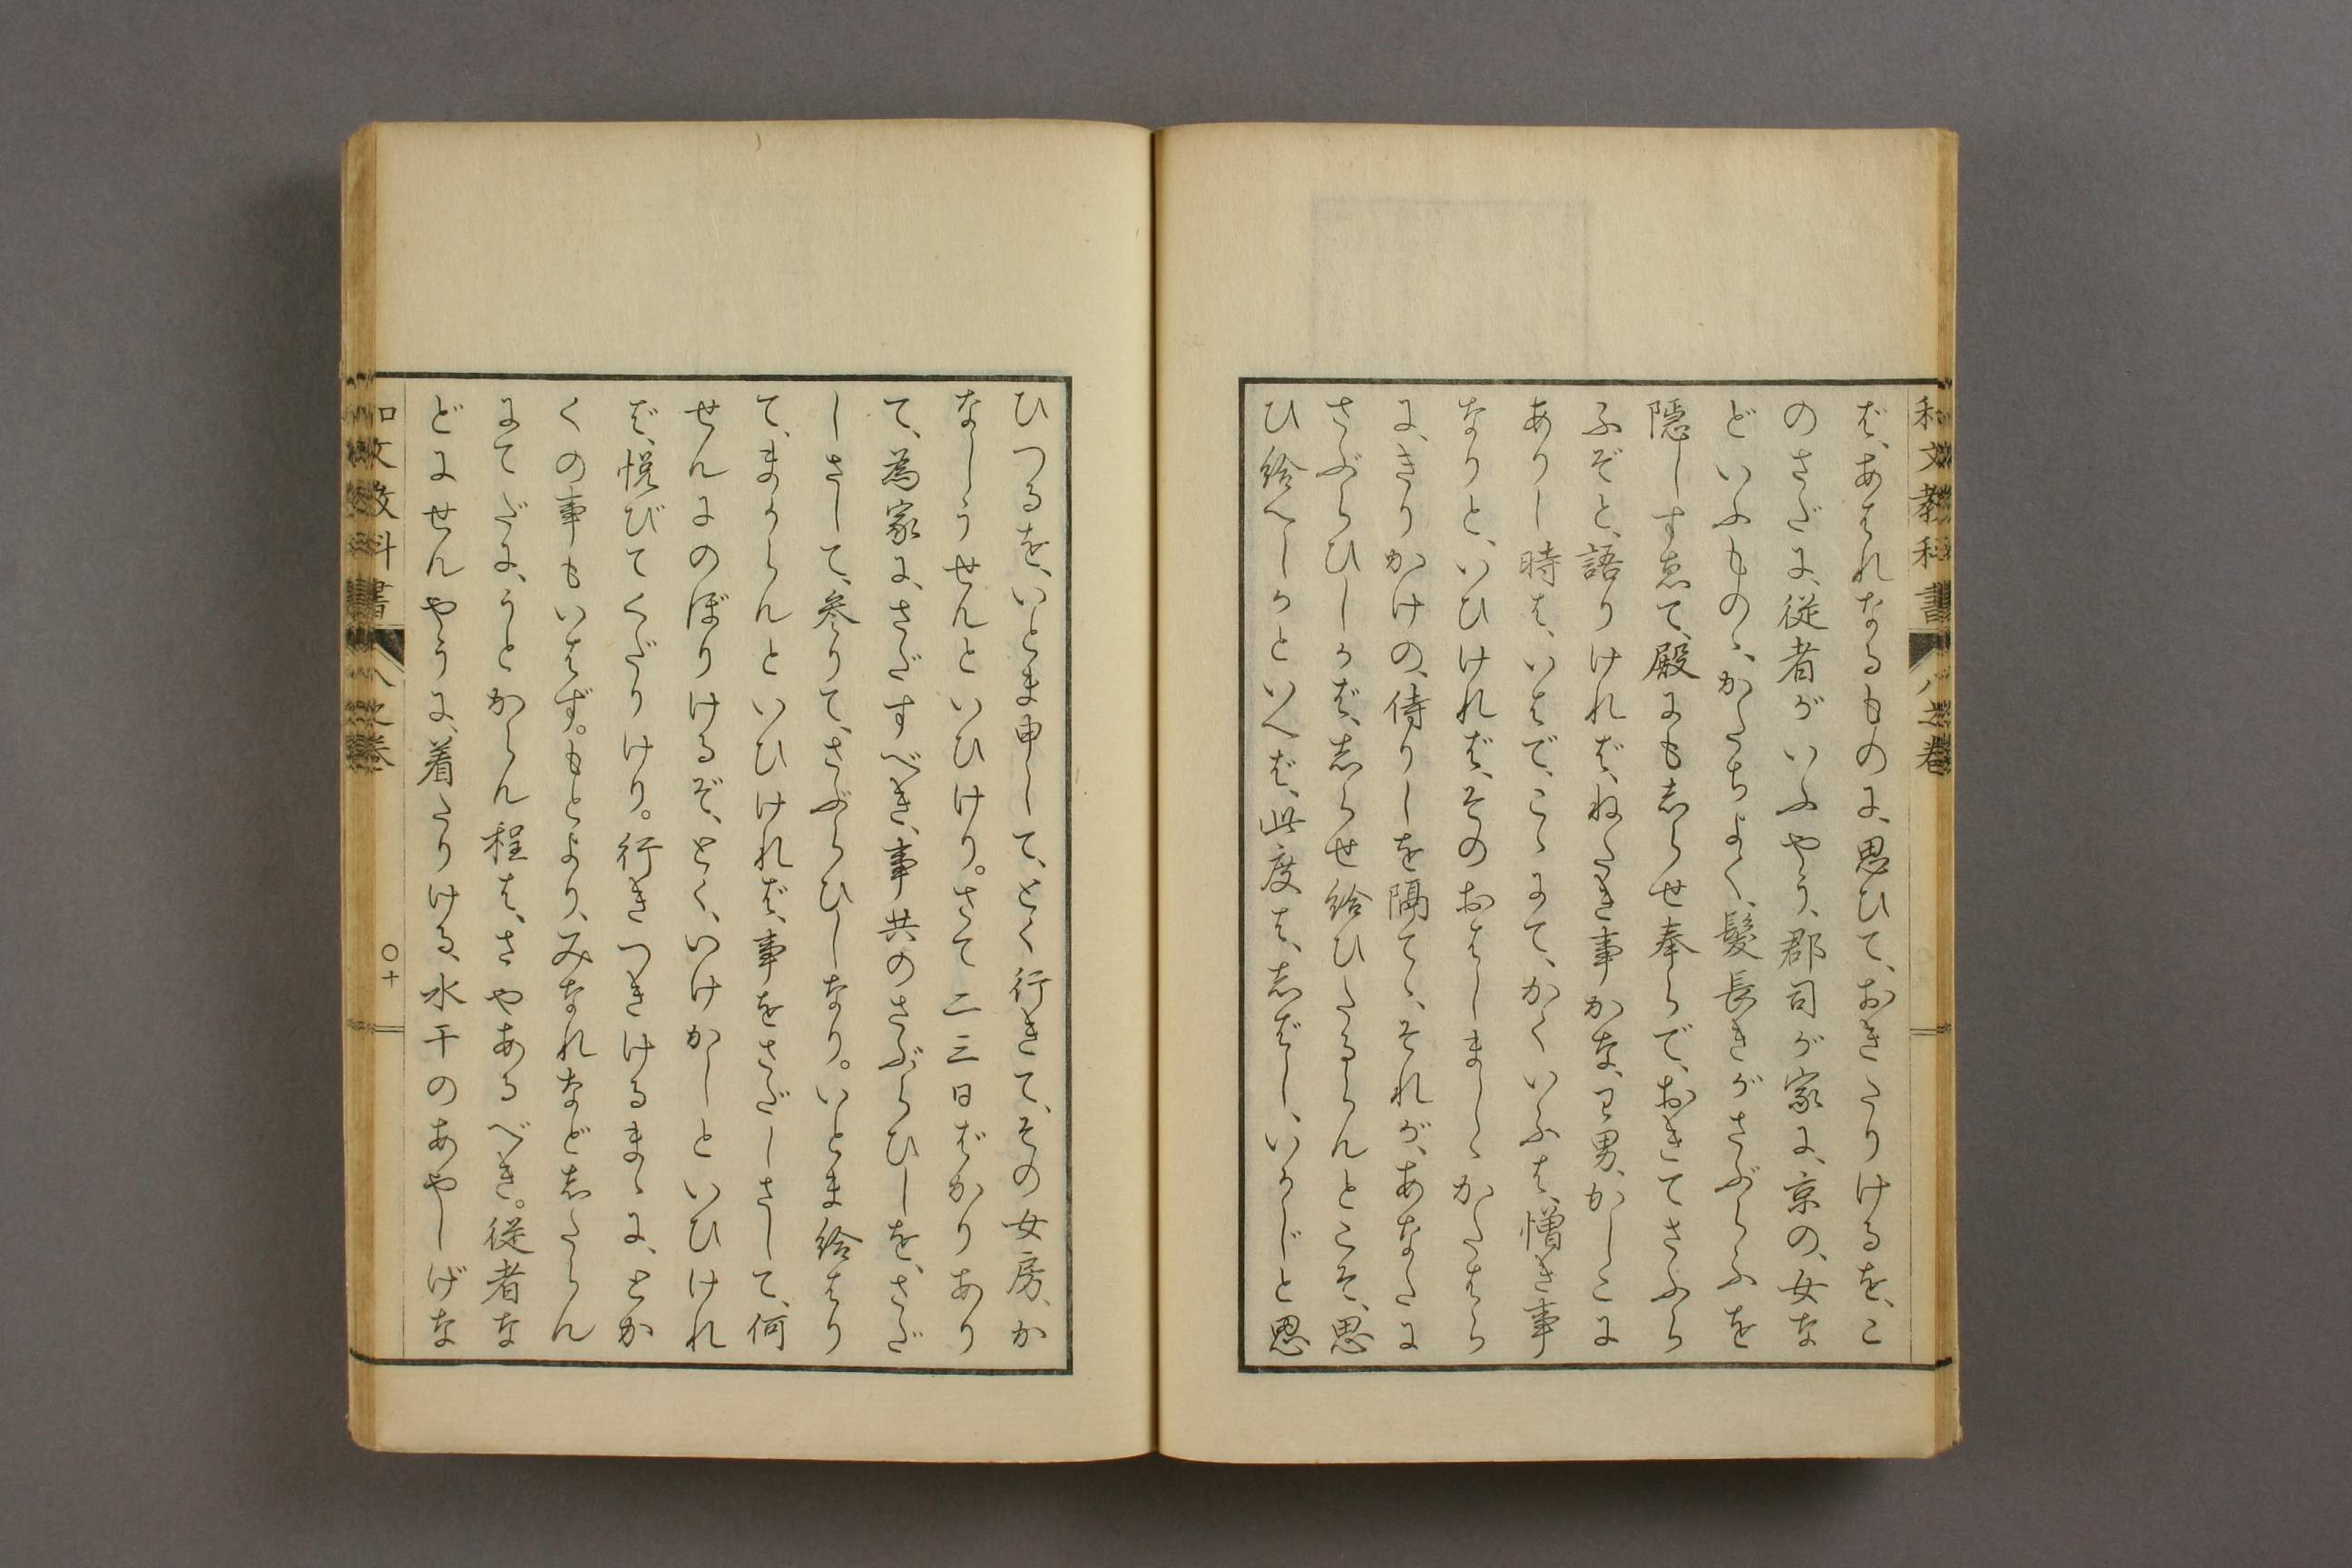 和文教科書 八之巻
ば、あはれなるものに、思ひて、おきたりけるを、こ
のさだに、従者がいふやう、郡司が家に、京の、女な
どいふものゝ、かたちよく、髪長きがさぶらふを
隠しすゑて、殿にも志らせ奉らで、おきてさふら
ふぞと、語りければ、ねたき事かな、わ男、かしこに
ありし時は、いはで、こゝにて、かくいふは、憎き事
なりと、いひければ、そのおはしましゝかたはら
に、きりかけの、侍りしを隔てゝ、それが、あなたに
さぶらひしかば、志らせ給ひたるらんとこそ、思
ひ給へしかといへば、此度は、志ばし、いかじと思
ひつるを、いとま申して、とく行きて、その女房、か
なしうせんといひけり。さて二三日ばかりあり
て、為家に、さだすべき、事共のさぶらひしを、さだ
しさして、参りて、さぶらひしなり。いとま給はり
て、まからんといひければ、事をさだしさして、何
せんにのぼりけるぞ、とく、いけかしといひけれ
ば、悦びてくだりけり。行きつきけるまゝに、とか
くの事もいはず。もとより、みなれなど志たらん
にてだに、うとからん程は、さやあるべき。従者な
どにせんやうに、着たりける、水干のあやしげな
和文教科書 八之巻 〇十